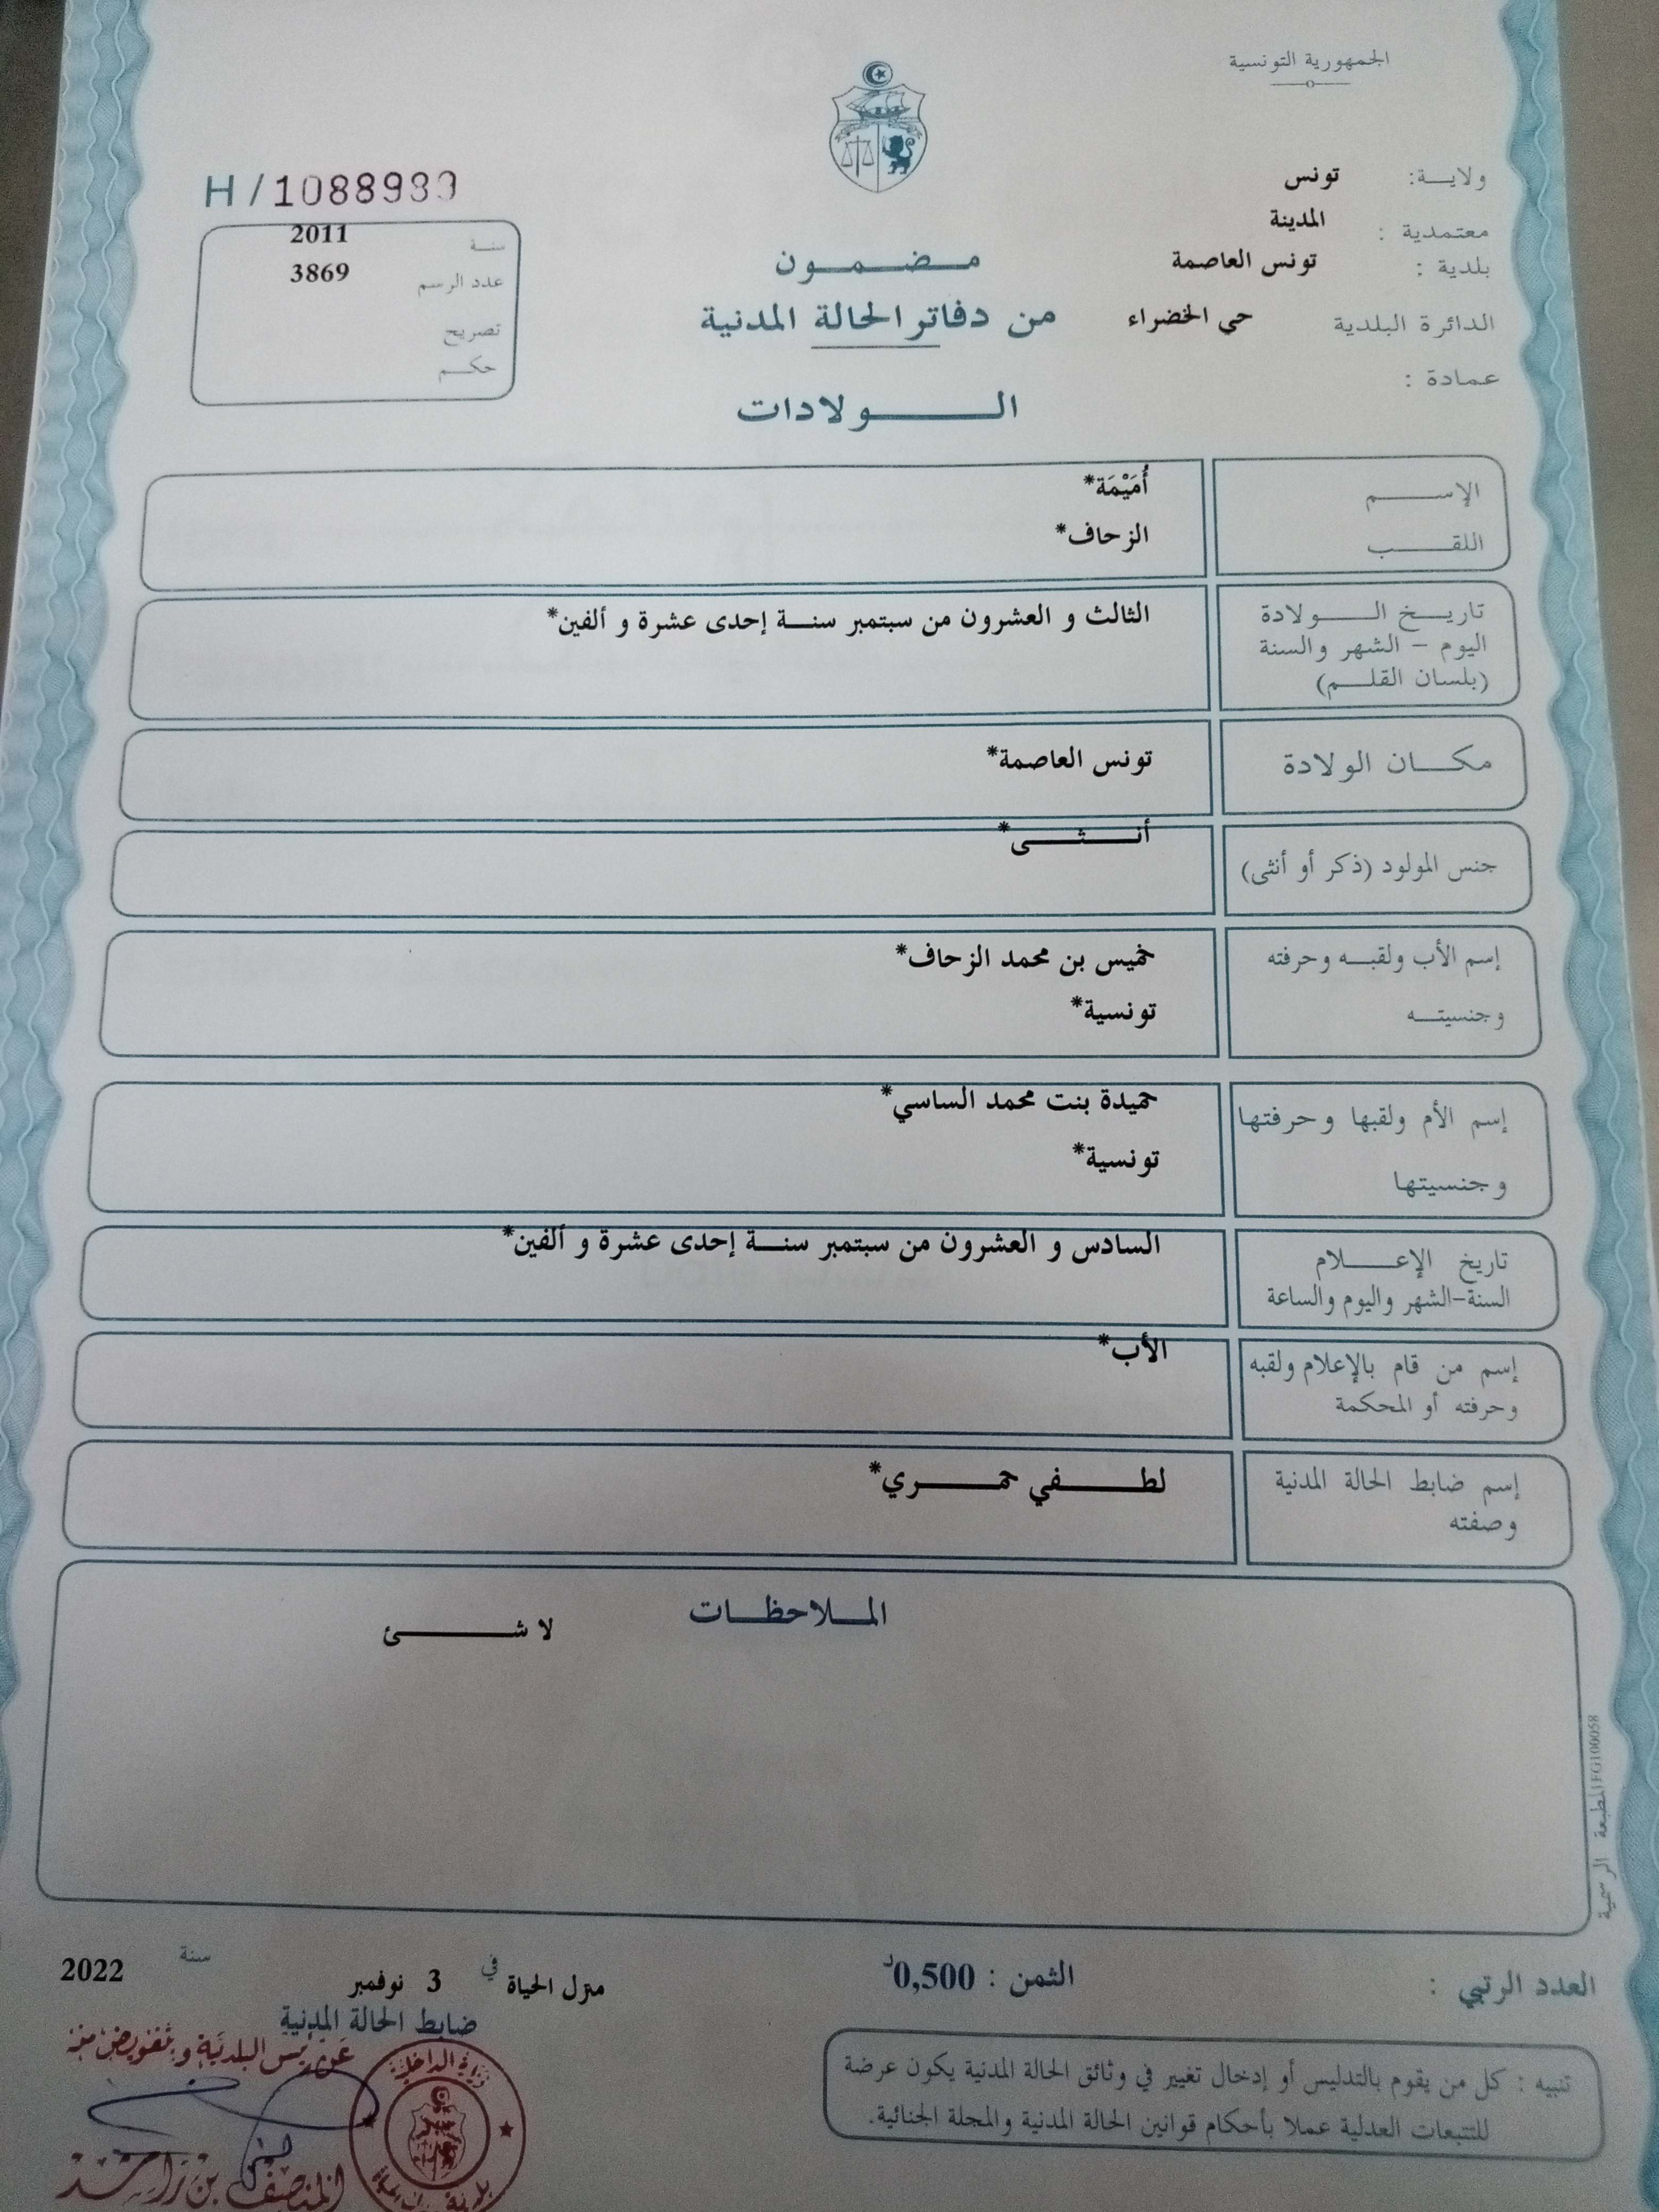 الجمهورية التونسية
ولايـــة: تونس
معتمدية : المدينة
بلدية : تونس العاصمة
الدائرة البلدية حي الخضراء
عمادة :
H/
سنة 2011
عدد الرسم 3869
تصريح
حكم
مضمون
من دفاتر الحالة المدنية
الولادات
الإسم أُمَيْمَة*
اللقب الزحاف*
تاريخ الولادة الثالث و العشرون من سبتمبر سنة إحدى عشرة و ألفين*
اليوم – الشهر والسنة
(بلسان القلم)
مكان الولادة تونس العاصمة*
جنس المولود (ذكر أو أنثى) أنثى*
إسم الأب ولقبه وحرفته خميس بن محمد الزحاف*
وجنسيته تونسية*
إسم الأم ولقبها وحرفتها حميدة بنت محمد الساسي*
وجنسيتها تونسية*
تاريخ الإعلام السادس و العشرون من سبتمبر سنة إحدى عشرة و ألفين*
السنة-الشهر واليوم والساعة
إسم من قام بالإعلام ولقبه الأب*
وحرفته أو المحكمة
إسم ضابط الحالة المدنية لطفي حمري*
وصفته
الملاحظات
لا شئ
المطبعة الرسمية FG100058
العدد الرتبي :
الثمن : 0,500د
منزل الحياة في 3 نوفمبر سنة 2022
ضابط الحالة المدنية
عن رئيس البلدية وبتفويض منه
المنصف بن راشد
وزارة الداخلية
تنبيه : كل من يقوم بالتدليس أو إدخال تغيير في وثائق الحالة المدنية يكون عرضة
للتتبعات العدلية عملا بأحكام قوانين الحالة المدنية والمجلة الجنائية.